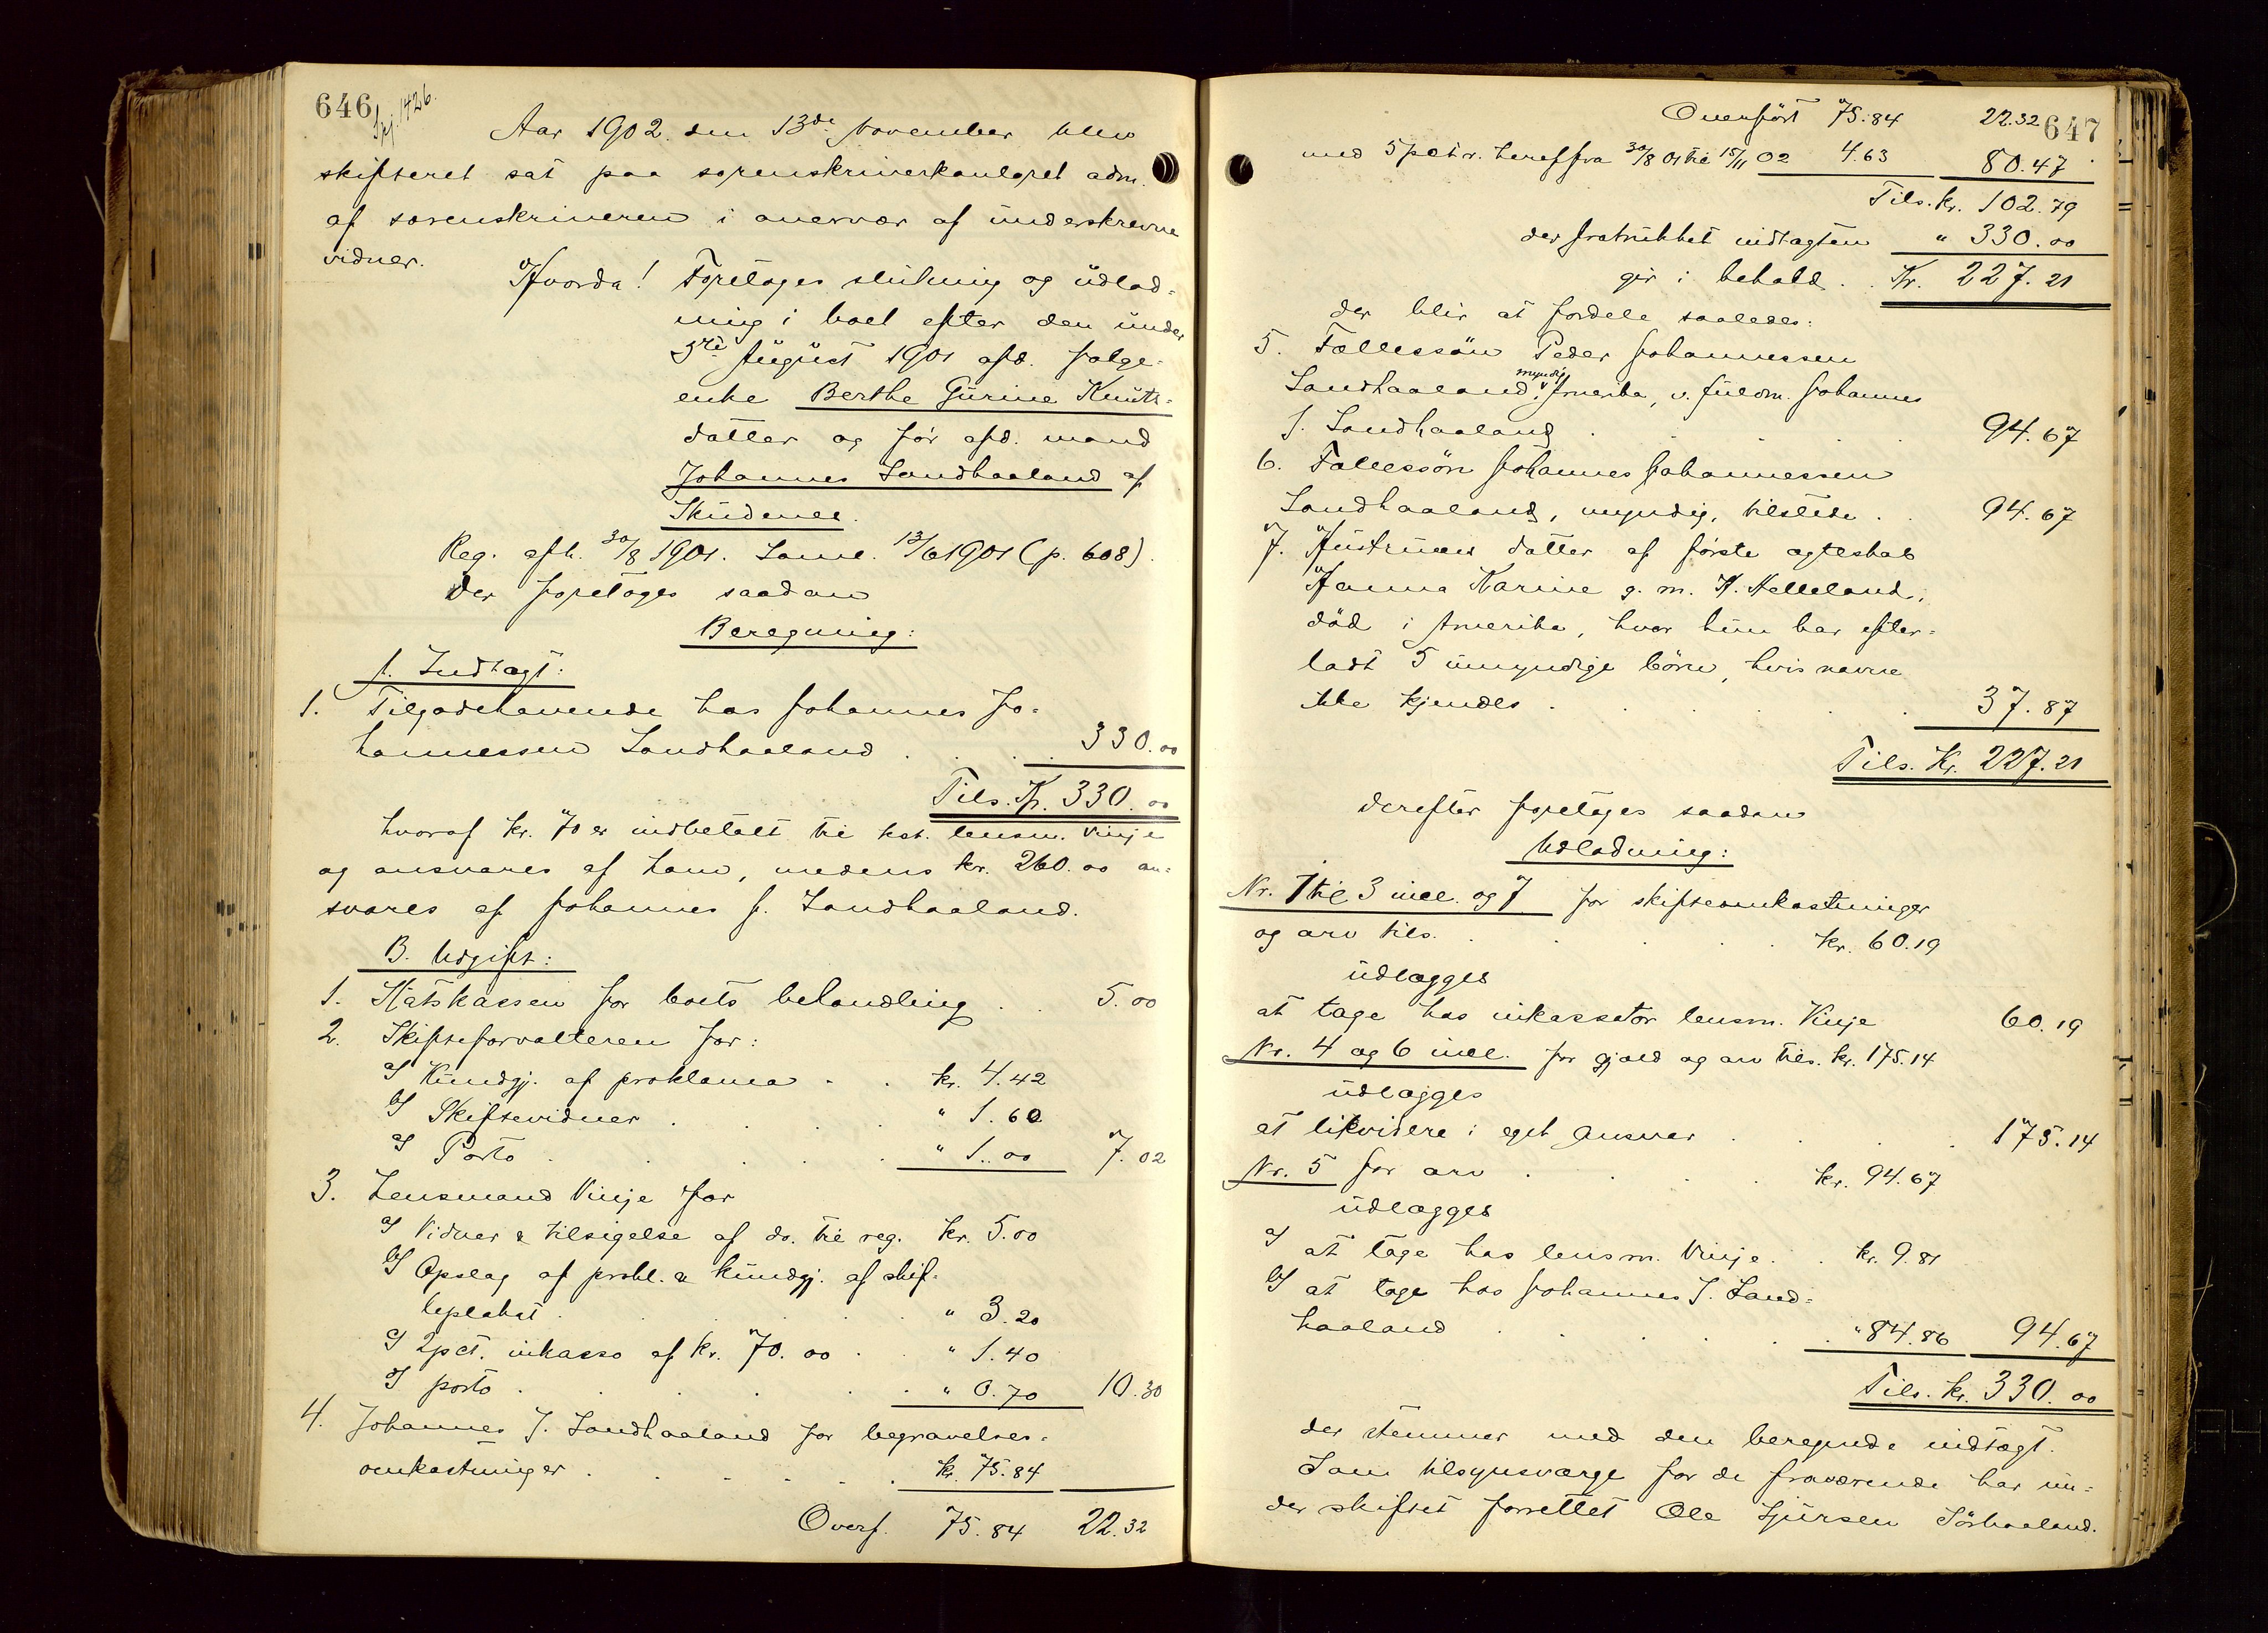 646
Spj. 1426.
Aar 1902 den 13de november blev
skifteret sat paa sorenskriverkontoret adm.
af sorenskriveren i overvær af underskrevne
vidner.
Hvorda! Foretoges slutning og udlod-
ning i boet efter den under
3die August 1901 afd. følge-
enke Berthe Gurine Knuts-
datter og før afd. mand
Johannes Sandhaaland af
Skudenes.
Reg. afh. 30/8 1901. Saml. 13/6 1901 (p. 608).
Der foretoges saadan
Beregning:
A. Indtægt:
1. Tilgodehavende hos Johannes Jo-
hannessen Sandhaaland . . . 330.00
Tils. Kr. 330.00
hvoraf kr. 70 er indbetalt til kst. lensm. Vinje
og ansvares af ham, medens kr. 260.00 an-
svares af Johannes J. Sandhaaland.
B. Udgift:
1. Statskassen for boets behandling . . 5.00
2. Skifteforvalteren for:
a/ Kundgj. af proklama . . kr. 4.42
b/ Skiftevidner . . . . " 1.60
c/ Porto . . . . . " 1.00 7.02
3. Lensmand Vinje for
a/ Vidner & tilsigelse af do. til reg. kr. 5.00
b/ Opslag af prokl. & kundgj. af skif-
teplakat . . . . . " 3.20
c/ 2 pct. inkasso af kr. 70.00 . . " 1.40
d/ porto . . . . . " 0.70 10.30
4. Johannes J. Sandhaaland for begravelses-
omkostninger . . . . . kr. 75.84
Overf. 75.84 22.32
647
Overført 75.84 22.32
med 5 pct r. heraf fra 30/8 01 til 15/11 02 4.63 80.47
Tils. kr. 102.79
der fratrukket indtægten " 330.00
gir i behold . . Kr. 227.21
der blir at fordele saaledes:
5. Fællessøn Peder Johannessen
myndig
Sandhaaland, Amerika, v. fuldm. Johannes
J. Sandhaaland . . . . . 94.67
6. Fællessøn Johannes Johannessen
Sandhaaland, myndig, tilstede . . 94.67
7. Hustruens datter af første ægteskab
Hanna Karine g. m. K. Helleland,
død i Amerika, hvor hun har efter-
ladt 5 umyndige børn, hvis navne
ikke kjendes . . . . . 37.87
Tils. Kr. 227.21
Derefter foretoges saadan
Udlodning:
Nr. 1 til 3 incl. og 7 for skifteomkostninger
og arv tils. . . . . kr. 60.19
udlægges
at tage hos inkassator lensm. Vinje 60.19
Nr. 4 og 6 incl. for gjæld og arv tils. kr. 175.14
udlægges
at likvidere i eget ansvar . . . . 175.14
Nr. 5 for arv . . . . kr. 94.67
udlægges
a/ at tage hos lensm. Vinje . . kr. 9.81
b/ at tage hos Johannes J. Sand-
haaland . . . . . " 84.86 94.67
Tils. kr. 330.00
der stemmer med den beregnede indtægt.
Som tilsynsværge for de fraværende har un-
der skiftet forrettet Ole Sjursen Sørhaaland.